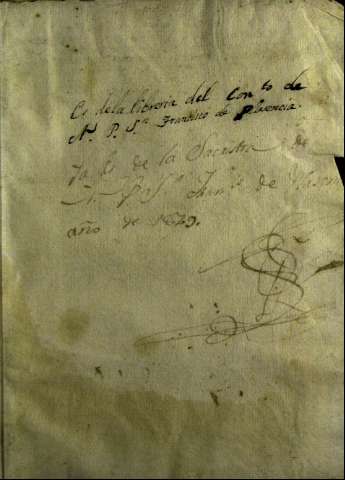 Es de la libreria del Con.to de
N. P. S.n Francisco de Plasencia.
de la Sacristia de
N. P. S.n Fran.co de
año de 1629.